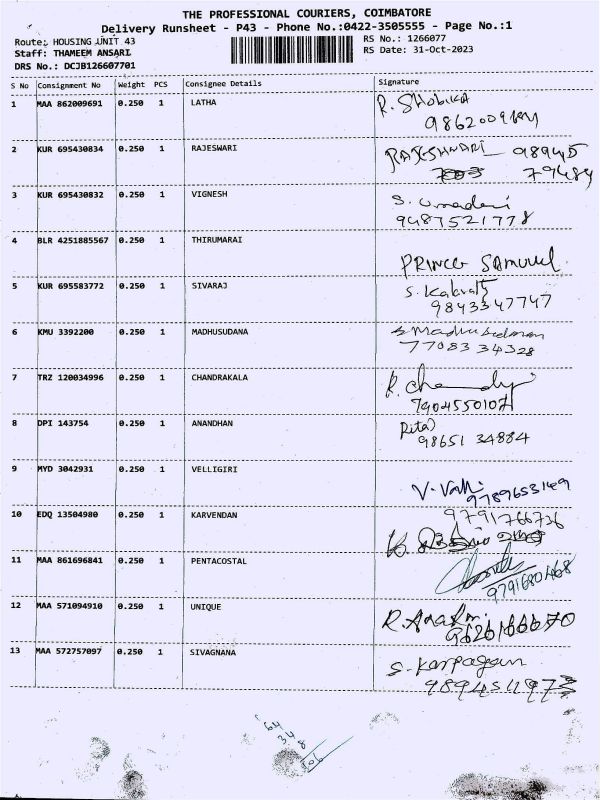 THE PROFESSIONAL COURIERS, COIMBATORE
Delivery Runsheet - P43 - Phone No.:0422-3505555 - Page No.:1
Route: HOUSING UNIT 43
RS No.: 1266077
Staff: THAMEEM ANSARI
RS Date: 31-Oct-2023
DRS No.: DCJB126607701
S No Consignment No Weight PCS Consignee Details Signature
1 MAA 862009691 0.250 1 LATHA R. Shobika
2 KUR 695430834 0.250 1 RAJESWARI RAJESHWARI 98945
79484
3 KUR 695430832 0.250 1 VIGNESH S. Umadevi
9487521778
4 BLR 4251885567 0.250 1 THIRUMARAI
PRINCE SAMUVEL
5 KUR 695583772 0.250 1 SIVARAJ S.
9843347747
6 KMU 3392200 0.250 1 MADHUSUDANA
77083 34328
7 TRZ 120034996 0.250 1 CHANDRAKALA
7904550107
8 DPI 143754 0.250 1 ANANDHAN Rita
98651 34884
9 MYD 3042931 0.250 1 VELLIGIRI
V. Valli
9789653149
10 EDQ 13504980 0.250 1 KARVENDAN 9791766736
11 MAA 861696841 0.250 1 PENTACOSTAL
9791680468
12 MAA 571094910 0.250 1 UNIQUE R.
9626166670
13 MAA 572757097 0.250 1 SIVAGNANA S. Karpagam
64
34 8